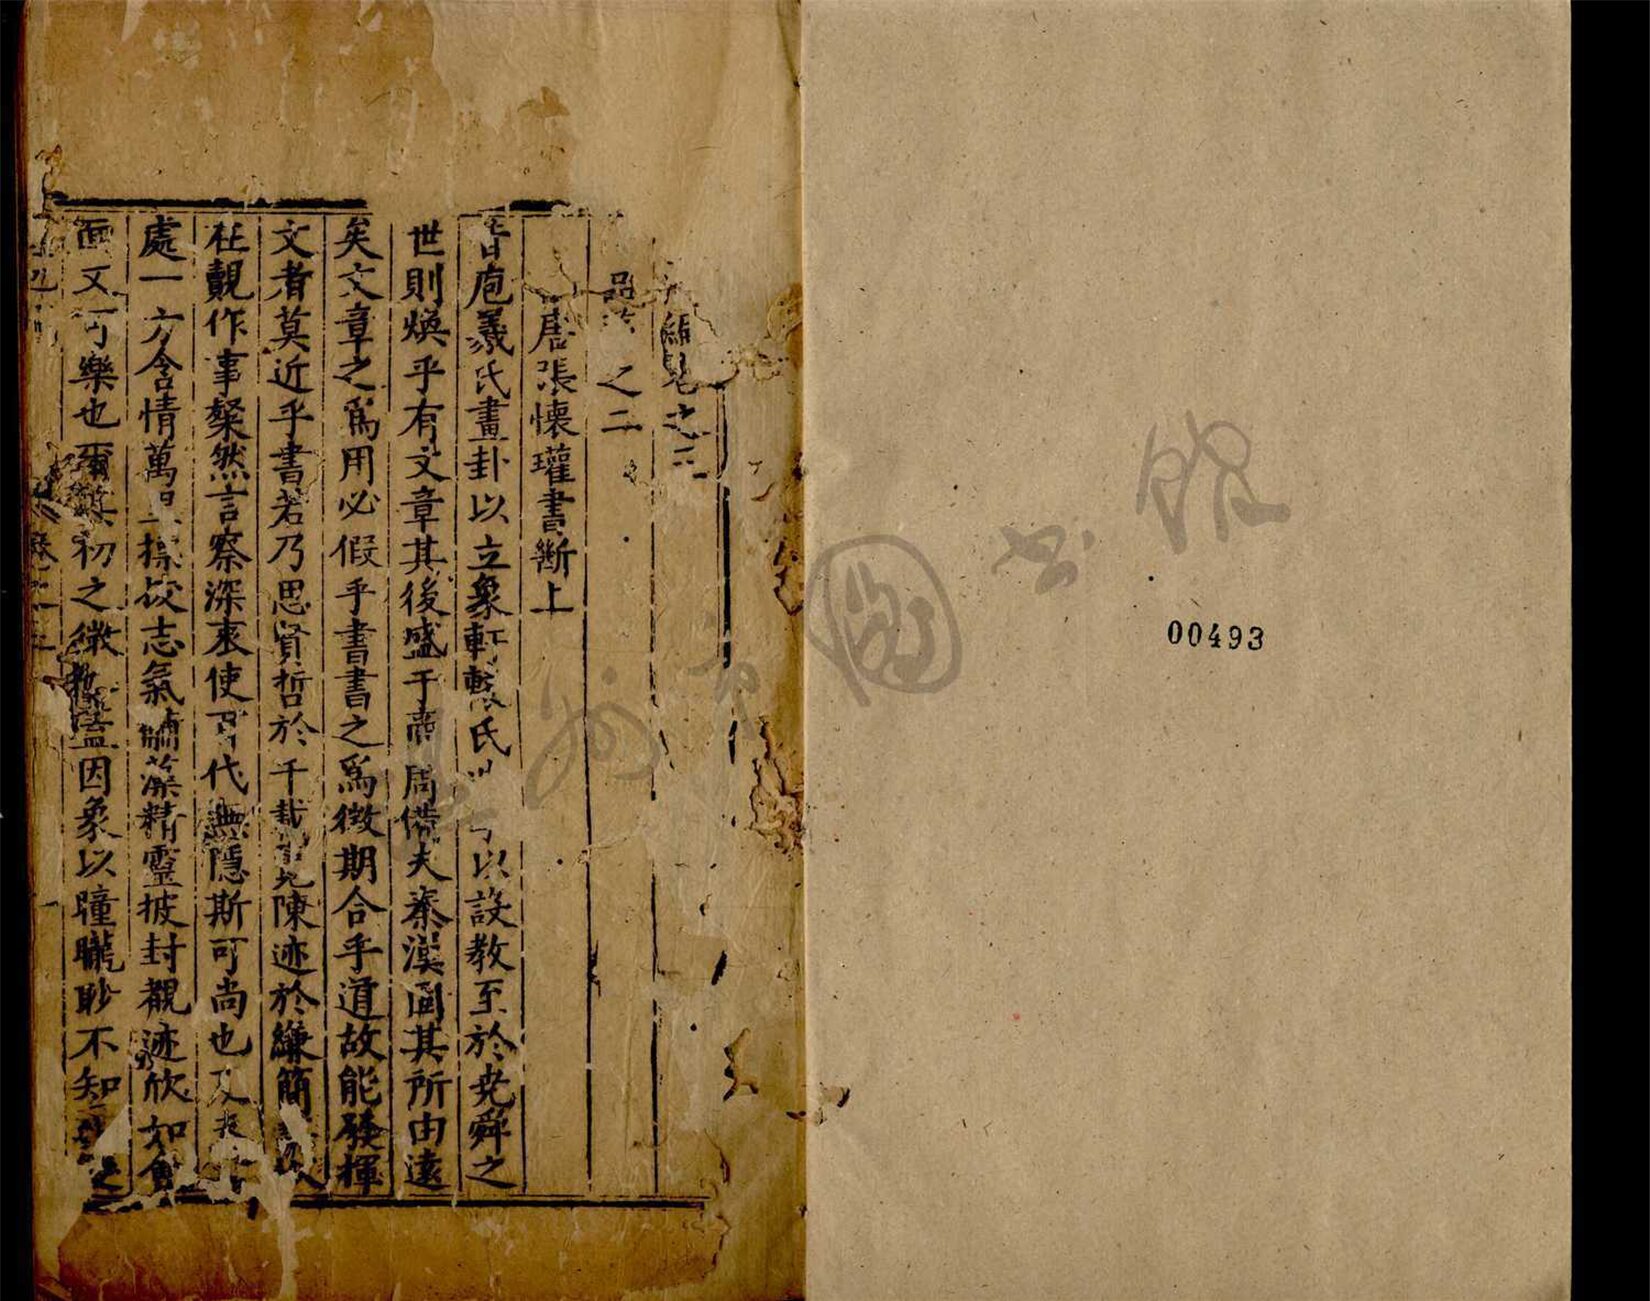 編卷之三
品 之二
唐張懷瓘書斷上
昔庖羲氏畫卦以立象軒轅氏 以設教至於堯舜之
世則煥乎有文章其後盛于商周備夫秦漢固其所由遠
矣文章之爲用必假乎書書之爲徵期合乎道故能發揮
文者莫近乎書若乃思賢哲於千載覽陳迹於縑簡
在覿作事粲然言察深衷使可代無隱斯可尚也又
處一方含情萬里摽拔志氣黼藻精靈披封觀迹欣如會
面又可樂也爾其初之微也蓋因象以瞳矓眇不知其
圖书馆
州市
00493